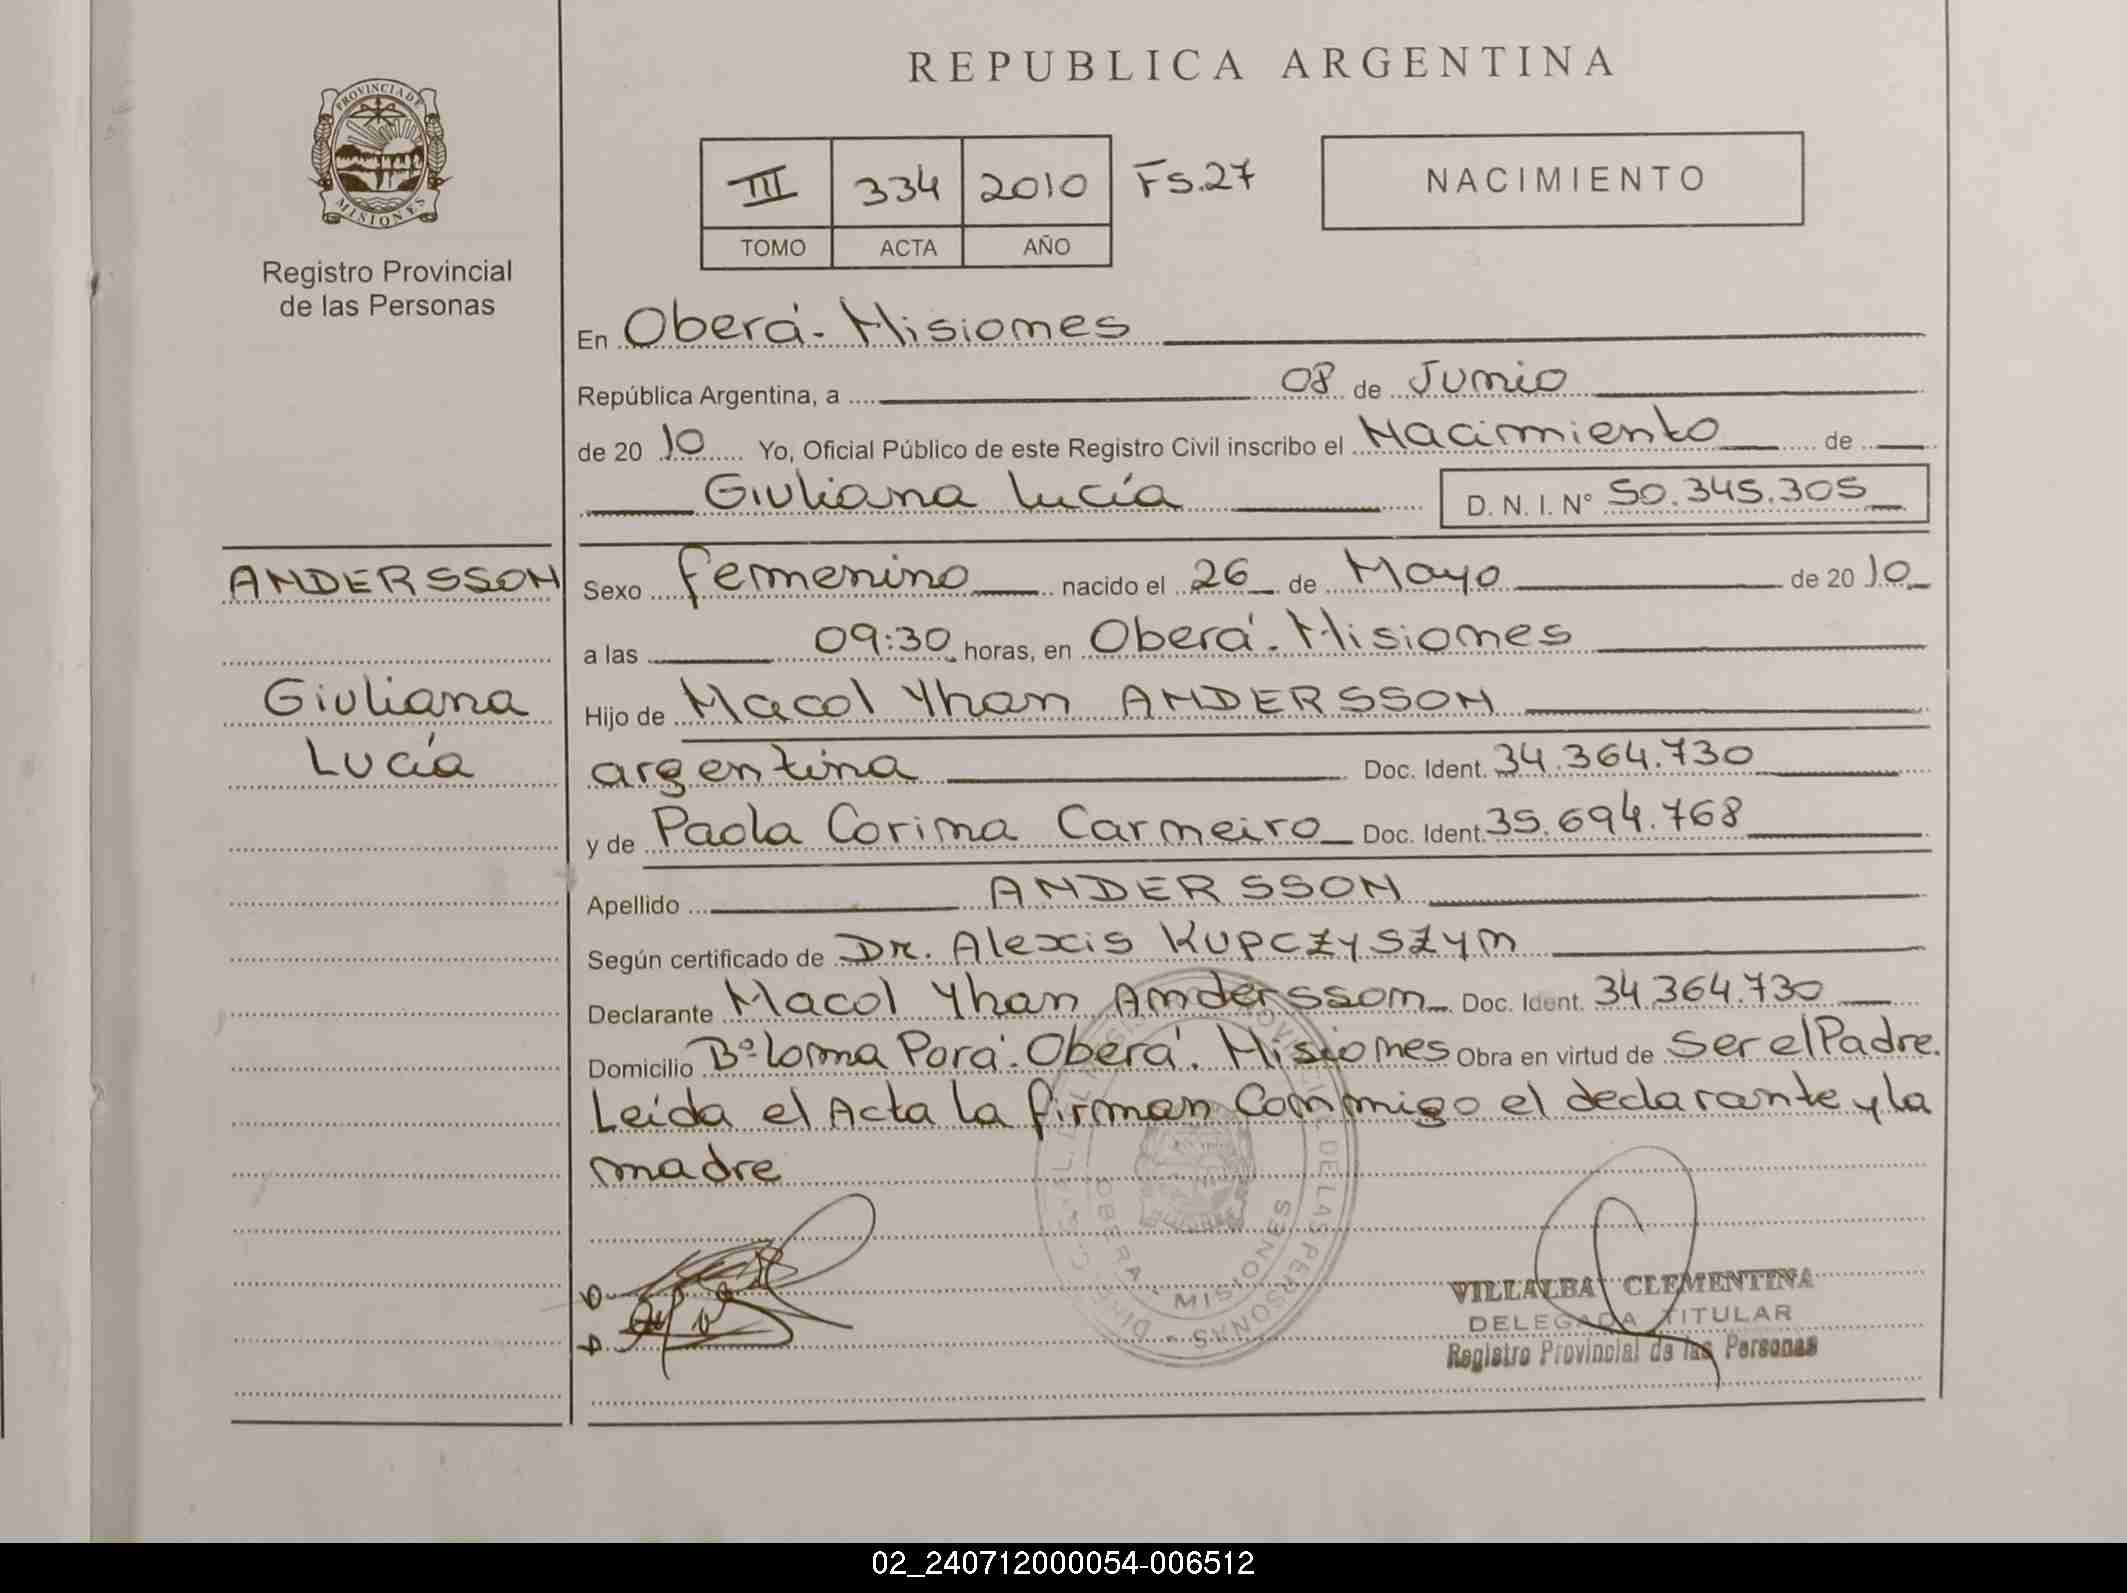 REPUBLICA ARGENTINA
PROVINCIA DE MISIONES
Registro Provincial
de las Personas
III 334 2010 Fs.27
TOMO ACTA AÑO
NACIMIENTO
En Oberá - Misiones
República Argentina, a 08 de Junio
de 2010 Yo, Oficial Público de este Registro Civil inscribo el Nacimiento de
Giuliana Lucía D. N. I. Nº 50.345.305
ANDERSSON
Giuliana
Lucía
Sexo femenino nacido el 26 de Mayo de 2010
a las 09:30 horas, en Oberá - Misiones
Hijo de Macol Yhan ANDERSSON
argentina Doc. Ident. 34.364.730
y de Paola Corina Carneiro Doc. Ident. 35.694.768
Apellido ANDERSSON
Según certificado de Dr. Alexis KUPCZYSZYN
Declarante Macol Yhan Andersson Doc. Ident. 34.364.730
Domicilio Bº Loma Porá - Oberá - Misiones Obra en virtud de Ser el Padre.
Leída el Acta la firman Conmigo el declarante y la
madre
OBERA - MISIONES
VILLALBA CLEMENTINA
DELEGADA TITULAR
Registro Provincial de las Personas
02_240712000054-006512